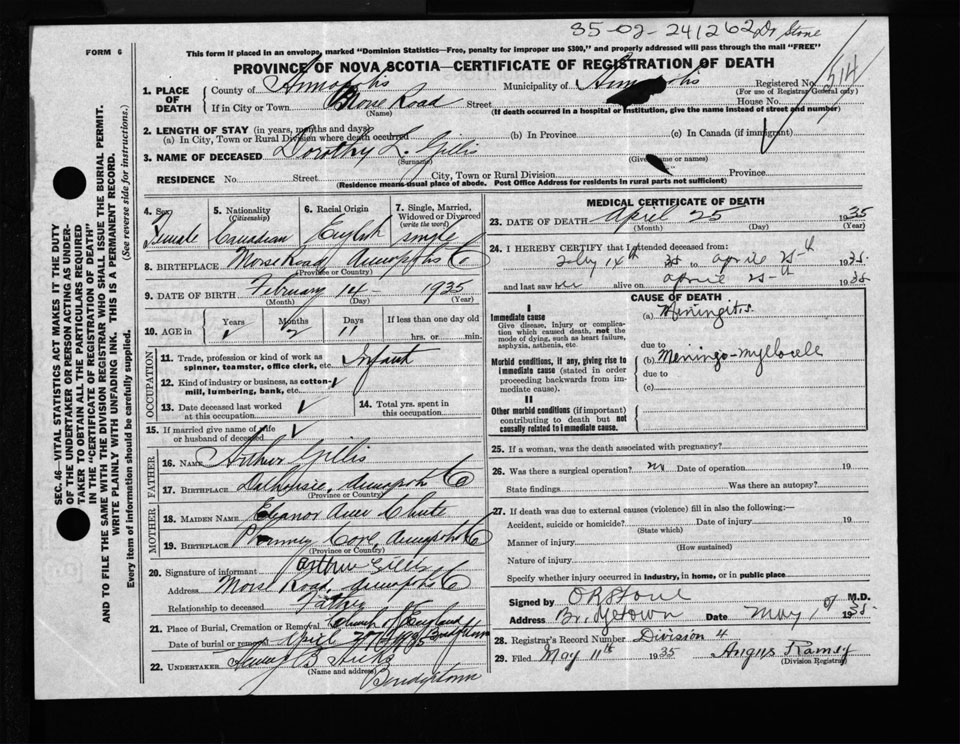 35-02-241262 Dr Stone
FORM 6
This form if placed in an envelope, marked "Dominion Statistics—Free, penalty for improper use $300," and properly addressed will pass through the mail "FREE"
PROVINCE OF NOVA SCOTIA—CERTIFICATE OF REGISTRATION OF DEATH
514
1. PLACE OF DEATH
County of Annapolis Municipality of Annapolis Registered No.
(For use of Registrar General only)
If in City or Town Morse Road Street House No.
(Name) (If death occurred in a hospital or institution, give the name instead of street and number)
2. LENGTH OF STAY (in years, months and days)
(a) In City, Town or Rural Division where death occurred (b) In Province (c) In Canada (if immigrant)
3. NAME OF DECEASED Dorothy L. Gillis
(Surname) (Given name or names)
RESIDENCE No. Street City, Town or Rural Division Province
(Residence means usual place of abode. Post Office Address for residents in rural parts not sufficient)
SEC. 46—VITAL STATISTICS ACT MAKES IT THE DUTY
OF THE UNDERTAKER OR PERSON ACTING AS UNDER-
TAKER TO OBTAIN ALL THE PARTICULARS REQUIRED
IN THE "CERTIFICATE OF REGISTRATION OF DEATH"
AND TO FILE THE SAME WITH THE DIVISION REGISTRAR WHO SHALL ISSUE THE BURIAL PERMIT.
WRITE PLAINLY WITH UNFADING INK. THIS IS A PERMANENT RECORD.
Every item of information should be carefully supplied. (See reverse side for instructions.)
4. Sex 5. Nationality (Citizenship) 6. Racial Origin 7. Single, Married, Widowed or Divorced (write the word)
Female Canadian English single
8. BIRTHPLACE Morse Road, Annapolis Co
(Province or Country)
9. DATE OF BIRTH February 14 1935
(Month) (Day) (Year)
10. AGE in Years Months Days If less than one day old
2 11 hrs. or min.
OCCUPATION
11. Trade, profession or kind of work as
spinner, teamster, office clerk, etc. Infant
12. Kind of industry or business, as cotton-
mill, lumbering, bank, etc.
13. Date deceased last worked
at this occupation
14. Total yrs. spent in
this occupation
15. If married give name of wife
or husband of deceased
FATHER
16. NAME Arthur Gillis
17. BIRTHPLACE Dalhousie, Annapolis Co
(Province or Country)
MOTHER
18. MAIDEN NAME Eleanor Chute
19. BIRTHPLACE Cove, Annapolis Co
(Province or Country)
20. Signature of informant Arthur Gillis
Address Morse Road, Annapolis Co
Relationship to deceased Father
21. Place of Burial, Cremation or Removal Church of England
Date of burial or removal April 1935 Bridgetown
22. UNDERTAKER B Hicks
(Name and address)
Bridgetown
MEDICAL CERTIFICATE OF DEATH
23. DATE OF DEATH April 25 1935
(Month) (Day) (Year)
24. I HEREBY CERTIFY that I attended deceased from:
14th 35 to April 25th 1935
and last saw her alive on April 25th 1935
CAUSE OF DEATH
I
Immediate cause
Give disease, injury or complica-
tion which caused death, not the
mode of dying, such as heart failure,
asphyxia, asthenia, etc.
(a) Meningitis
due to
Morbid conditions, if any, giving rise to
immediate cause (stated in order
proceeding backwards from im-
mediate cause).
(b) Meningo-myelocele
due to
(c)
II
Other morbid conditions (if important)
contributing to death but not
causally related to immediate cause.
25. If a woman, was the death associated with pregnancy?
26. Was there a surgical operation? no Date of operation 19
State findings Was there an autopsy?
27. If death was due to external causes (violence) fill in also the following:—
Accident, suicide or homicide? Date of injury 19
(State which)
Manner of injury
(How sustained)
Nature of injury
Specify whether injury occurred in industry, in home, or in public place
Signed by O R Stone M.D.
Bridgetown Date May 1935
28. Registrar's Record Number Division 4
29. Filed May 11th 1935 Angus Ramey
(Division Registrar)